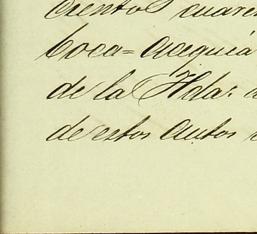 ciento cuaren
boca=acequia
de la Hda.
de estos autos